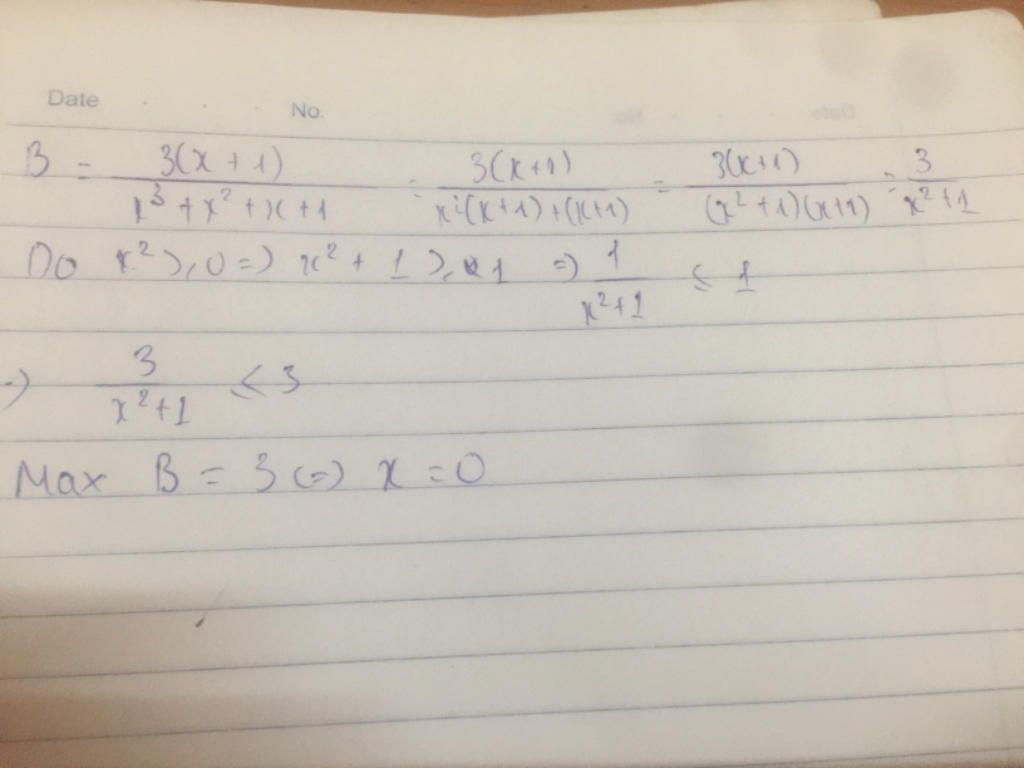 Date . . . No.
B = 3(x + 1) / x³ + x² + x + 1 = 3(x+1) / x²(x+1) + (x+1) = 3(x+1) / (x² + 1)(x+1) = 3 / x² + 1
Do x² ⩾ 0 => x² + 1 ⩾ 1 => 1 / x²+1 ⩽ 1
=) 3 / x²+1 ⩽ 3
Max B = 3 (=) x = 0